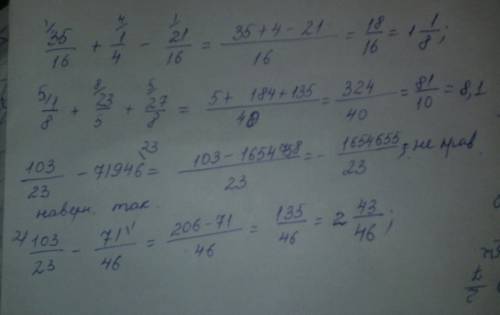 1/35/16 + 4/1/4 - 1/21/16 = 35+4-21/16 = 18/16 = 1 1/8;
5/1/8 + 8/23/5 + 5/27/8 = 5+184+135/40 = 324/40 = 81/10 = 8,1
103/23 - 71946 23/ = 103-1654758/23 = - 1654655/23; не прав.
наверн. так.
2) 103/23 - 71 1/46 = 206-71/46 = 135/46 = 2 43/46;